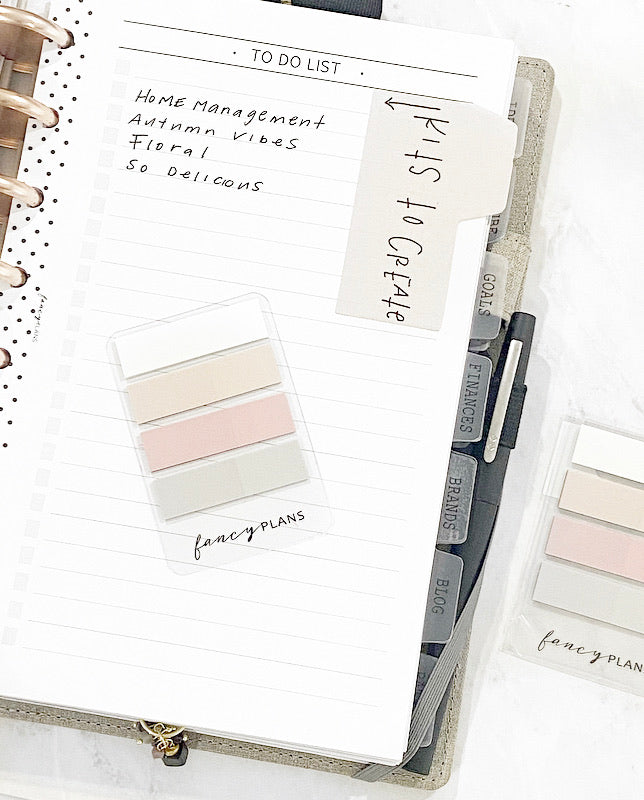 · TO DO LIST ·
HOME Management
Autumn Vibes
Floral
So Delicious
KITS to CREATE
GOALS
FINANCES
BRANDS
BLOG
fancy PLANS
fancy PLANS
fancy PLAN